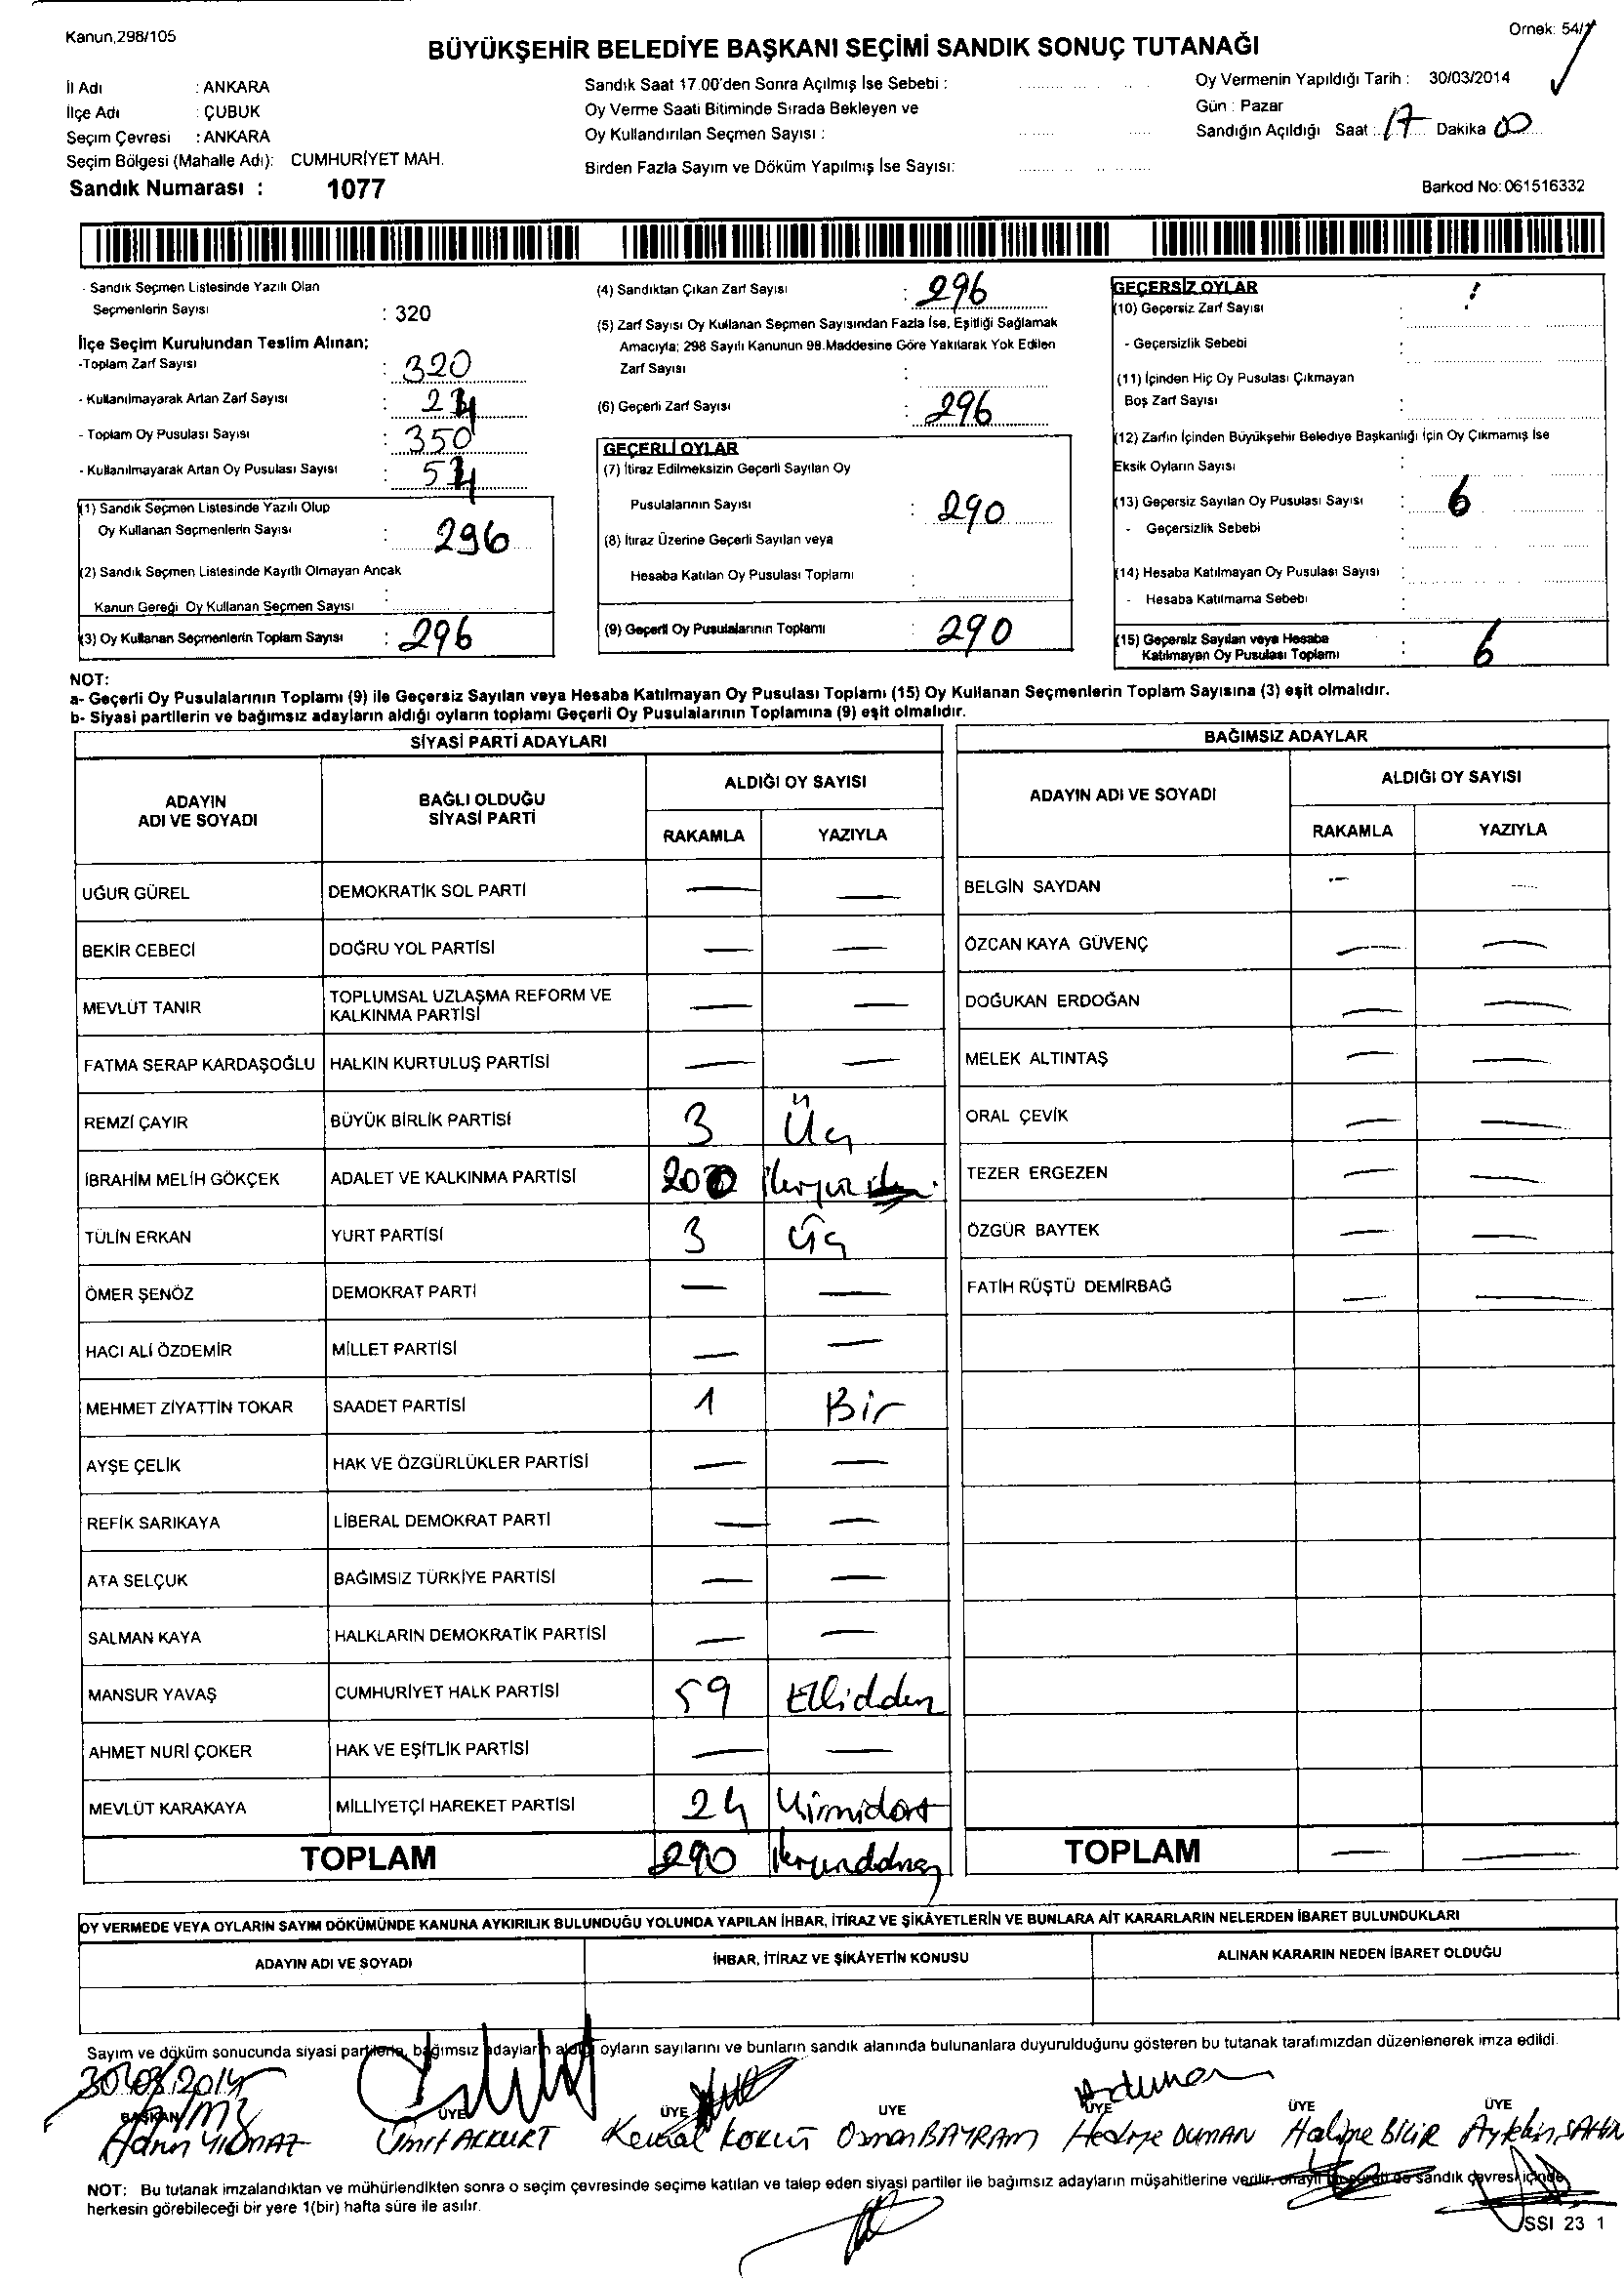 Kanun,298/105
Örnek: 54/1
BÜYÜKŞEHİR BELEDİYE BAŞKANI SEÇİMİ SANDIK SONUÇ TUTANAĞI
İl Adı : ANKARA
İlçe Adı : ÇUBUK
Seçim Çevresi : ANKARA
Seçim Bölgesi (Mahalle Adı): CUMHURİYET MAH.
Sandık Numarası : 1077
Sandık Saat 17.00'den Sonra Açılmış İse Sebebi :
Oy Verme Saati Bitiminde Sırada Bekleyen ve
Oy Kullandırılan Seçmen Sayısı :
Birden Fazla Sayım ve Döküm Yapılmış İse Sayısı:
Oy Vermenin Yapıldığı Tarih : 30/03/2014
Gün : Pazar
Sandığın Açıldığı Saat : 17 Dakika 00
Barkod No: 061516332
- Sandık Seçmen Listesinde Yazılı Olan
Seçmenlerin Sayısı : 320
İlçe Seçim Kurulundan Teslim Alınan;
-Toplam Zarf Sayısı : 320
- Kullanılmayarak Artan Zarf Sayısı : 24
- Toplam Oy Pusulası Sayısı : 350
- Kullanılmayarak Artan Oy Pusulası Sayısı : 54
(1) Sandık Seçmen Listesinde Yazılı Olup
Oy Kullanan Seçmenlerin Sayısı : 296
(2) Sandık Seçmen Listesinde Kayıtlı Olmayan Ancak
Kanun Gereği Oy Kullanan Seçmen Sayısı :
(3) Oy Kullanan Seçmenlerin Toplam Sayısı : 296
(4) Sandıktan Çıkan Zarf Sayısı : 296
(5) Zarf Sayısı Oy Kullanan Seçmen Sayısından Fazla İse, Eşitliği Sağlamak
Amacıyla; 298 Sayılı Kanunun 98.Maddesine Göre Yakılarak Yok Edilen
Zarf Sayısı :
(6) Geçerli Zarf Sayısı : 296
GEÇERLİ OYLAR
(7) İtiraz Edilmeksizin Geçerli Sayılan Oy
Pusulalarının Sayısı : 290
(8) İtiraz Üzerine Geçerli Sayılan veya
Hesaba Katılan Oy Pusulası Toplamı :
(9) Geçerli Oy Pusulalarının Toplamı : 290
GEÇERSİZ OYLAR
(10) Geçersiz Zarf Sayısı :
- Geçersizlik Sebebi :
(11) İçinden Hiç Oy Pusulası Çıkmayan
Boş Zarf Sayısı :
(12) Zarfın İçinden Büyükşehir Belediye Başkanlığı İçin Oy Çıkmamış İse
Eksik Oyların Sayısı :
(13) Geçersiz Sayılan Oy Pusulası Sayısı : 6
- Geçersizlik Sebebi :
(14) Hesaba Katılmayan Oy Pusulası Sayısı :
- Hesaba Katılmama Sebebi :
(15) Geçersiz Sayılan veya Hesaba
Katılmayan Oy Pusulası Toplamı : 6
NOT:
a- Geçerli Oy Pusulalarının Toplamı (9) ile Geçersiz Sayılan veya Hesaba Katılmayan Oy Pusulası Toplamı (15) Oy Kullanan Seçmenlerin Toplam Sayısına (3) eşit olmalıdır.
b- Siyasi partilerin ve bağımsız adayların aldığı oyların toplamı Geçerli Oy Pusulalarının Toplamına (9) eşit olmalıdır.
SİYASİ PARTİ ADAYLARI
ADAYIN
ADI VE SOYADI
BAĞLI OLDUĞU
SİYASİ PARTİ
ALDIĞI OY SAYISI
RAKAMLA YAZIYLA
UĞUR GÜREL DEMOKRATİK SOL PARTİ — —
BEKİR CEBECİ DOĞRU YOL PARTİSİ — —
MEVLÜT TANIR TOPLUMSAL UZLAŞMA REFORM VE
KALKINMA PARTİSİ — —
FATMA SERAP KARDAŞOĞLU HALKIN KURTULUŞ PARTİSİ — —
REMZİ ÇAYIR BÜYÜK BİRLİK PARTİSİ 3 Üç
İBRAHİM MELİH GÖKÇEK ADALET VE KALKINMA PARTİSİ 200
TÜLİN ERKAN YURT PARTİSİ 3 Üç
ÖMER ŞENÖZ DEMOKRAT PARTİ — —
HACI ALİ ÖZDEMİR MİLLET PARTİSİ — —
MEHMET ZİYATTİN TOKAR SAADET PARTİSİ 1 Bir
AYŞE ÇELİK HAK VE ÖZGÜRLÜKLER PARTİSİ — —
REFİK SARIKAYA LİBERAL DEMOKRAT PARTİ — —
ATA SELÇUK BAĞIMSIZ TÜRKİYE PARTİSİ — —
SALMAN KAYA HALKLARIN DEMOKRATİK PARTİSİ — —
MANSUR YAVAŞ CUMHURİYET HALK PARTİSİ 59
AHMET NURİ ÇOKER HAK VE EŞİTLİK PARTİSİ — —
MEVLÜT KARAKAYA MİLLİYETÇİ HAREKET PARTİSİ 24
TOPLAM 290
BAĞIMSIZ ADAYLAR
ADAYIN ADI VE SOYADI
ALDIĞI OY SAYISI
RAKAMLA YAZIYLA
BELGİN SAYDAN — —
ÖZCAN KAYA GÜVENÇ — —
DOĞUKAN ERDOĞAN — —
MELEK ALTINTAŞ — —
ORAL ÇEVİK — —
TEZER ERGEZEN — —
ÖZGÜR BAYTEK — —
FATİH RÜŞTÜ DEMİRBAĞ — —
TOPLAM — —
OY VERMEDE VEYA OYLARIN SAYIM DÖKÜMÜNDE KANUNA AYKIRILIK BULUNDUĞU YOLUNDA YAPILAN İHBAR, İTİRAZ VE ŞİKÂYETLERİN VE BUNLARA AİT KARARLARIN NELERDEN İBARET BULUNDUKLARI
ADAYIN ADI VE SOYADI İHBAR, İTİRAZ VE ŞİKÂYETİN KONUSU ALINAN KARARIN NEDEN İBARET OLDUĞU
Sayım ve döküm sonucunda siyasi partilerin, bağımsız adayların aldığı oyların sayılarını ve bunların sandık alanında bulunanlara duyurulduğunu gösteren bu tutanak tarafımızdan düzenlenerek imza edildi.
30/03/2014
BAŞKAN ÜYE ÜYE ÜYE ÜYE ÜYE ÜYE
YILMAZ Ümit AKKURT Kemal Osman BAYRAM Hediye DUMAN Halime BİLİR Aytekin ŞAHİN
NOT: Bu tutanak imzalandıktan ve mühürlendikten sonra o seçim çevresinde seçime katılan ve talep eden siyasi partiler ile bağımsız adayların müşahitlerine verilir, onaylı bir sureti de sandık çevresi içinde
herkesin görebileceği bir yere 1(bir) hafta süre ile asılır.
SSI 23 1